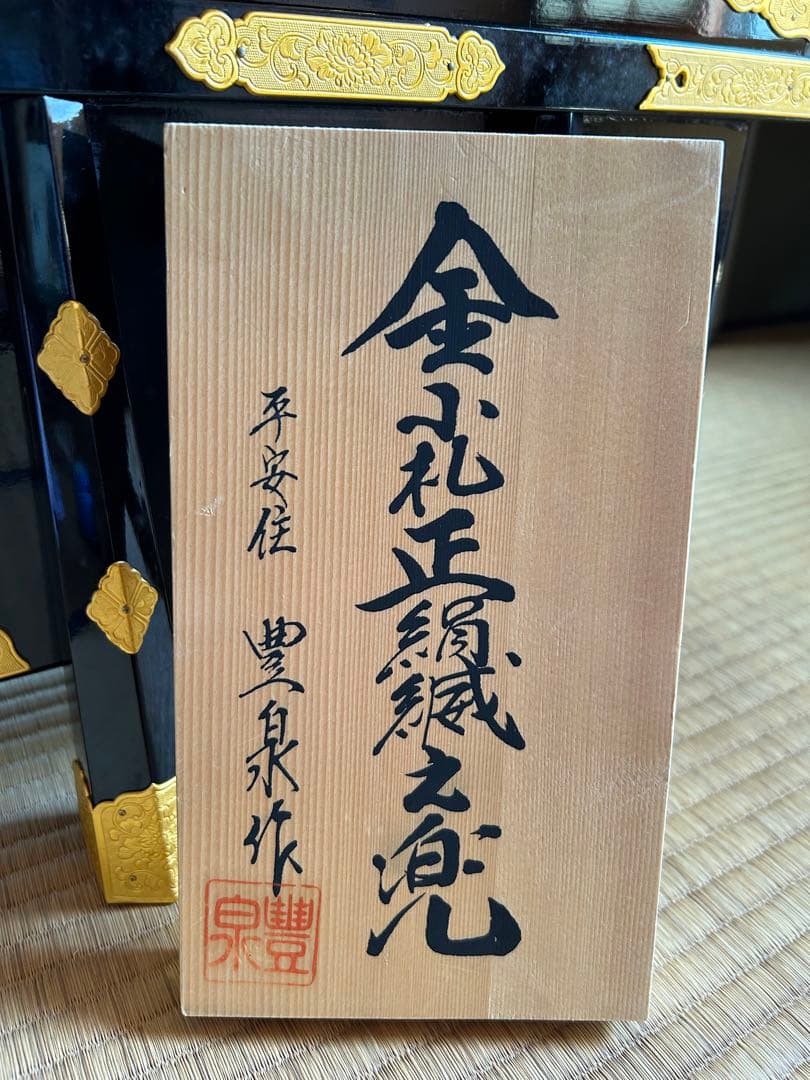 金小札正絹縅之兜
平安住 豊泉作
豐泉